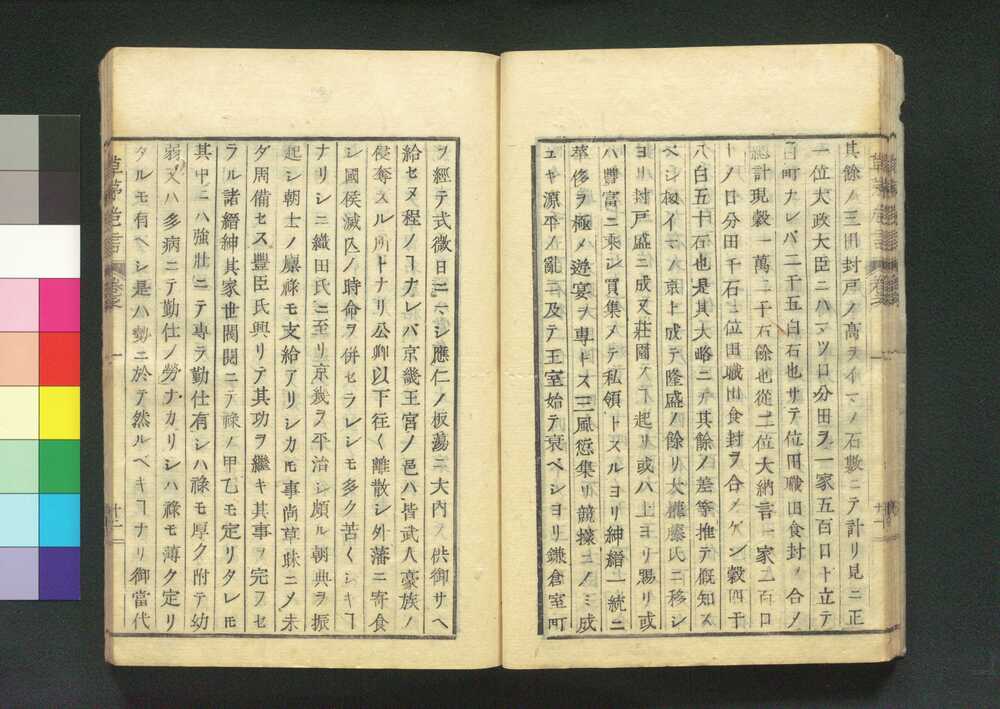 其餘ノ三田封戸ノ高ヲイマノ石數ニテ計リ見ニ正
一位大政大臣ニハマツ口分田ヲ一家五百口ト立テ
百町ナレバ二千五百石也サテ位田職田食封ノ合メ
總計現穀一萬二千石餘也從二位大納言一家二百口
トノ口分田千石ニ位田職田食封ヲ合メゲン穀四千
八百五十石也是其大略ニテ其餘ノ差等推テ概知ス
ベシ扨イマノ京上成テ隆盛ノ餘リ大權藤氏ニ移シ
ヨリ封戸盛ニ成又莊爾ス下起リ或ハ上ヨリ賜リ或
ハ豐富ニ乘シ買集メテ私領トスルヨリ紳縉一統ニ
華侈ヲ極メ遊宴ヲ專トス三風愆集リ競攘ニノミ成
ユヤ源平ノ亂ニ及テ王室始テ衰ベシヨリ鎌倉室町
ヲ經テ式微日ニ々シ應仁ノ板蕩ニ大内ス供御サヘ
給セヌ程ノヿナレバ京畿王宮ノ邑ハ皆武人豪族ノ
侵奪スル所トナリ公卿以下往く離散シ外藩ニ寄食
シ國侯滅亾ノ時命ヲ併セラレシモ多ク苦くシキヿ
ナリシニ織田氏ニ至リ京畿ヲ平治シ頗ル朝典ヲ振
起シ朝士ノ廩祿モ支給アリシカ𪜈事尚草昧ニメ未
ダ周備セス豐臣氏興リテ其功ヲ繼キ其事ヲ完フセ
ラル諸縉紳其家世閥閲ニテ祿ノ甲乙モ定リタレ𪜈
其中ニハ強壯ニテ專ラ勤仕有シハ祿モ厚ク附テ幼
弱又ハ多病ニテ勤仕ノ勞ナカリシハ祿モ薄ク定リ
タルモ有ベシ是ハ勢ニ於テ然ルベキヿナリ御當代
草茅危言
卷之一
十二